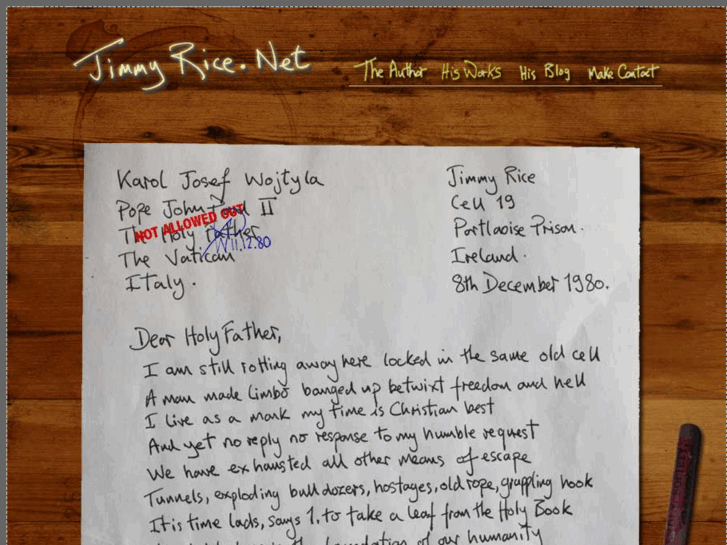 Jimmy Rice.Net
The Author His Works His Blog Make Contact
Karol Josef Wojtyla
Pope John Paul II
The Holy Father
The Vatican
Italy.
NOT ALLOWED OUT
11.12.80
Jimmy Rice
Cell 19
Portlaoise Prison.
Ireland.
8th December 1980.
Dear Holy Father,
I am still rotting away here locked in the same old cell
A man made limbo banged up betwixt freedom and hell
I live as a monk my time is Christian best
And yet no reply no response to my humble request
We have exhausted all other means of escape
Tunnels, exploding bulldozers, hostages, old rope, grappling hook
It is time lads, says I, to take a leaf from the Holy Book
foundation of our humanity